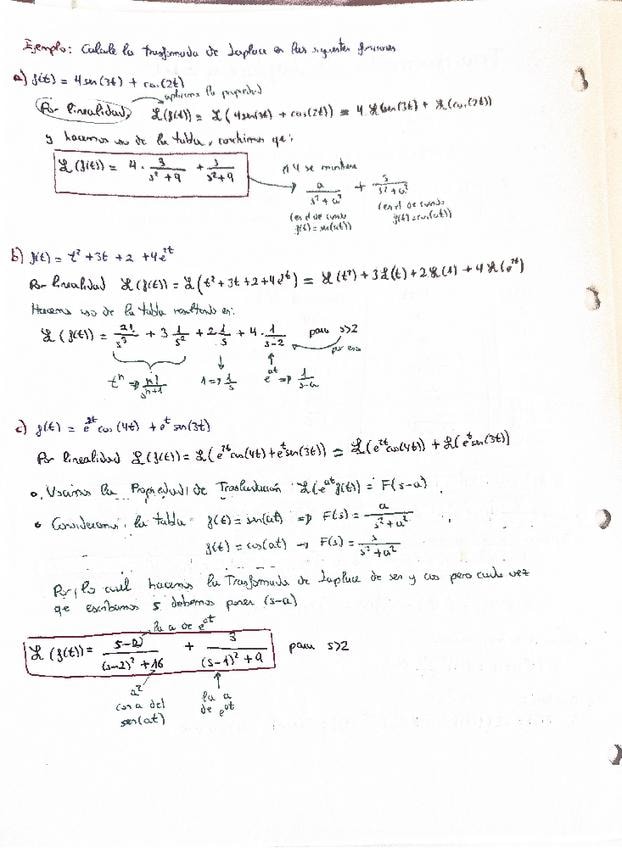 Ejemplo: Calcule la trasformada de Laplace en las siguientes funciones
a) f(t) = 4 sen(3t) + cos(2t)
aplicamos la propiedad
Por linealidad, ℒ(f(t)) = ℒ(4sen(3t) + cos(2t)) = 4 ℒ(sen(3t) + ℒ(cos(2t))
y hacemos uso de la tabla, concluimos que:
ℒ(f(t)) = 4 · 3/(s²+9) + s/(s²+9)
el 4 se mantiene
a/(s²+a²) + s/(s²+a²)
(en el de cuando f(t)=sen(at)) (en el de cuando f(t)=cos(at))
b) f(t) = t² + 3t + 2 + 4e^2t
Por linealidad ℒ(f(t)) = ℒ(t² + 3t + 2 + 4e^2t) = ℒ(t²) + 3ℒ(t) + 2ℒ(1) + 4ℒ(e^2t)
Hacemos uso de la tabla resultando en:
ℒ(f(t)) = 2!/s³ + 3 1/s² + 2 1/s + 4 · 1/(s-2) para s>2
por eso
t^n ⇒ n!/s^(n+1) 1 ⇒ 1/s e^at ⇒ 1/(s-a)
c) f(t) = e^2t cos(4t) + e^t sen(3t)
Por linealidad ℒ(f(t)) = ℒ(e^2t cos(4t) + e^t sen(3t)) = ℒ(e^2t cos(4t)) + ℒ(e^t sen(3t))
• Usamos la Propiedad de Traslación ℒ(e^at f(t)) = F(s-a)
• Consideramos la tabla f(t) = sen(at) ⇒ F(s) = a/(s²+a²)
f(t) = cos(at) → F(s) = s/(s²+a²)
Por lo cual hacemos la Trasformada de Laplace de sen y cos pero cada vez
que escribamos s debemos poner (s-a)
la a de e^at
ℒ(f(t)) = (s-2)/((s-2)² + 16) + 3/((s-1)² + 9) para s>2
a² la a
con a del de e^at
sen(at)